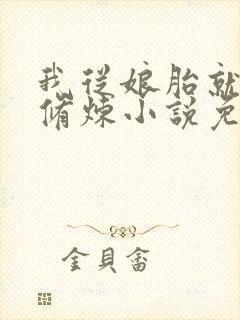 我从娘胎就
脩煉小說免
金貝畲